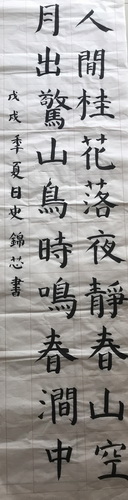 人閒桂花落夜靜春山空
月出驚山鳥時鳴春澗中
戊戌季夏日史錦芯書